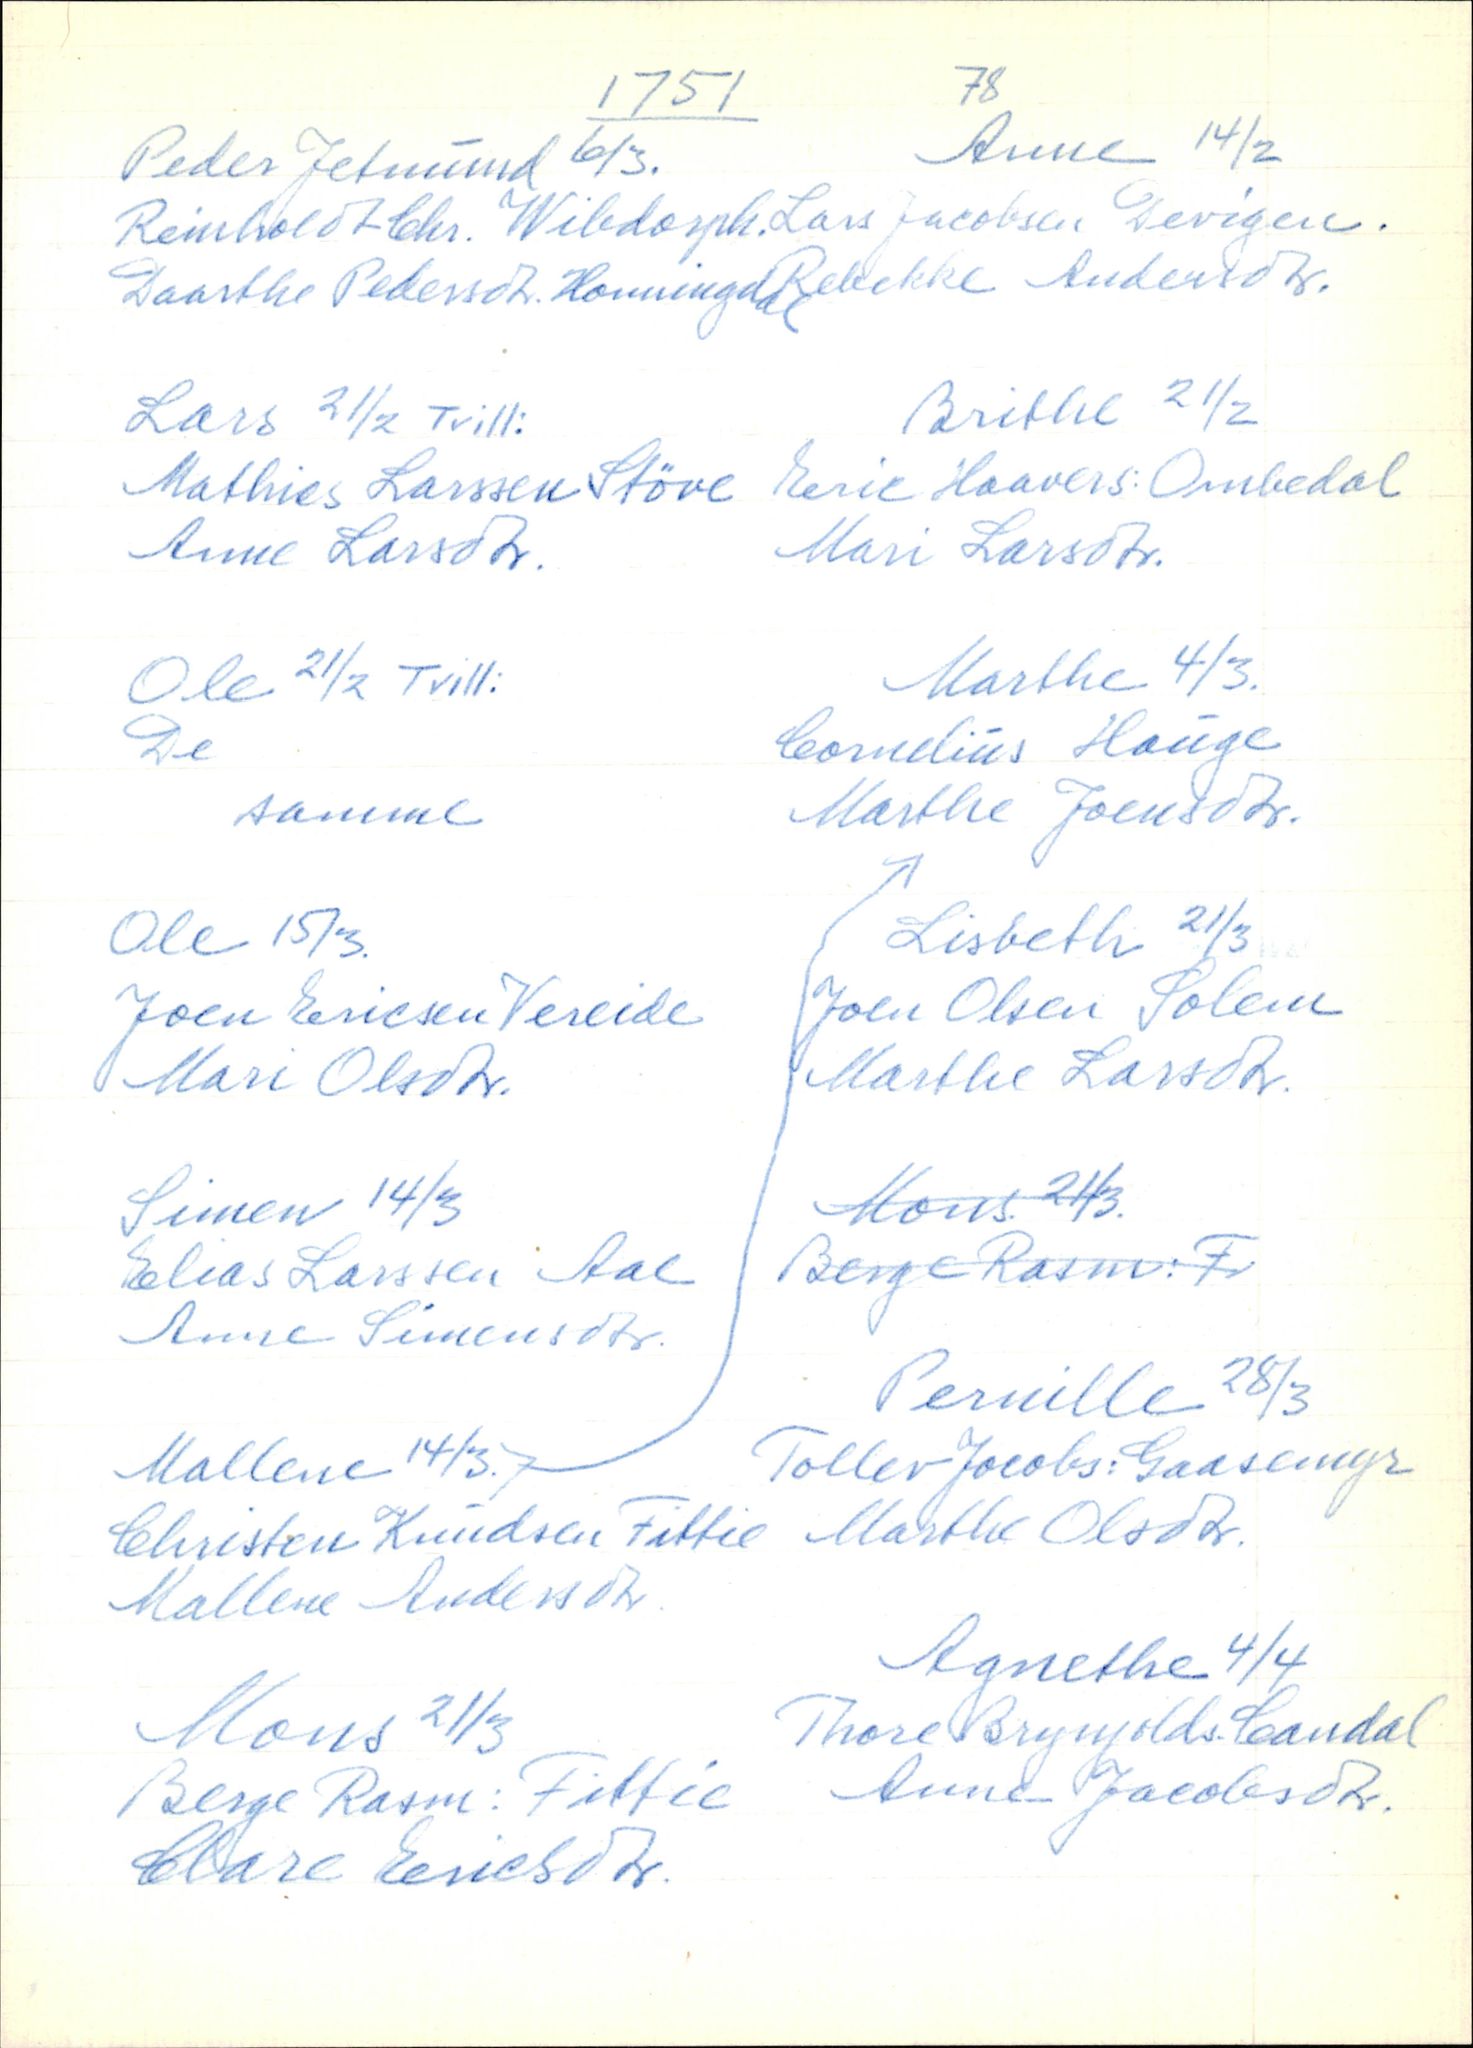 1751
78
Peder Jetmund 6/3.
Reinholdt Chr. Wibdorph.
Daarthe Pedersdtr. Honningdal
Lars 21/2 Tvill:
Mathies Larssen Støve
Anne Larsdtr.
Ole 21/2 Tvill:
De
samme
Ole 15/3.
Joen Ericsen Vereide
Mari Olsdtr.
Simen 14/3
Elias Larssen Aae
Anne Simensdtr.
Mallene 14/3.
Christen Knudsen Fittie
Mallene Andersdtr.
Mons 21/3
Berge Rasm: Fittie
Clare Ericsdtr.
Anne 14/2
Lars Jacobsen Devigen.
Rebekke Andersdtr.
Brithe 21/2
Eric Haavers: Ombedal
Mari Larsdtr.
Marthe 4/3.
Cornelius Hauge
Marthe Joensdtr.
Lisbeth 21/3
Joen Olsen Solem
Marthe Larsdtr.
Mons. 21/3.
Berge Rasm: F
Pernille 28/3
Tollev Jacobs: Gaasemyr
Marthe Olsdtr.
Agnethe 4/4
Thore Brynjolds. Candal
Anne Jacobsdtr.